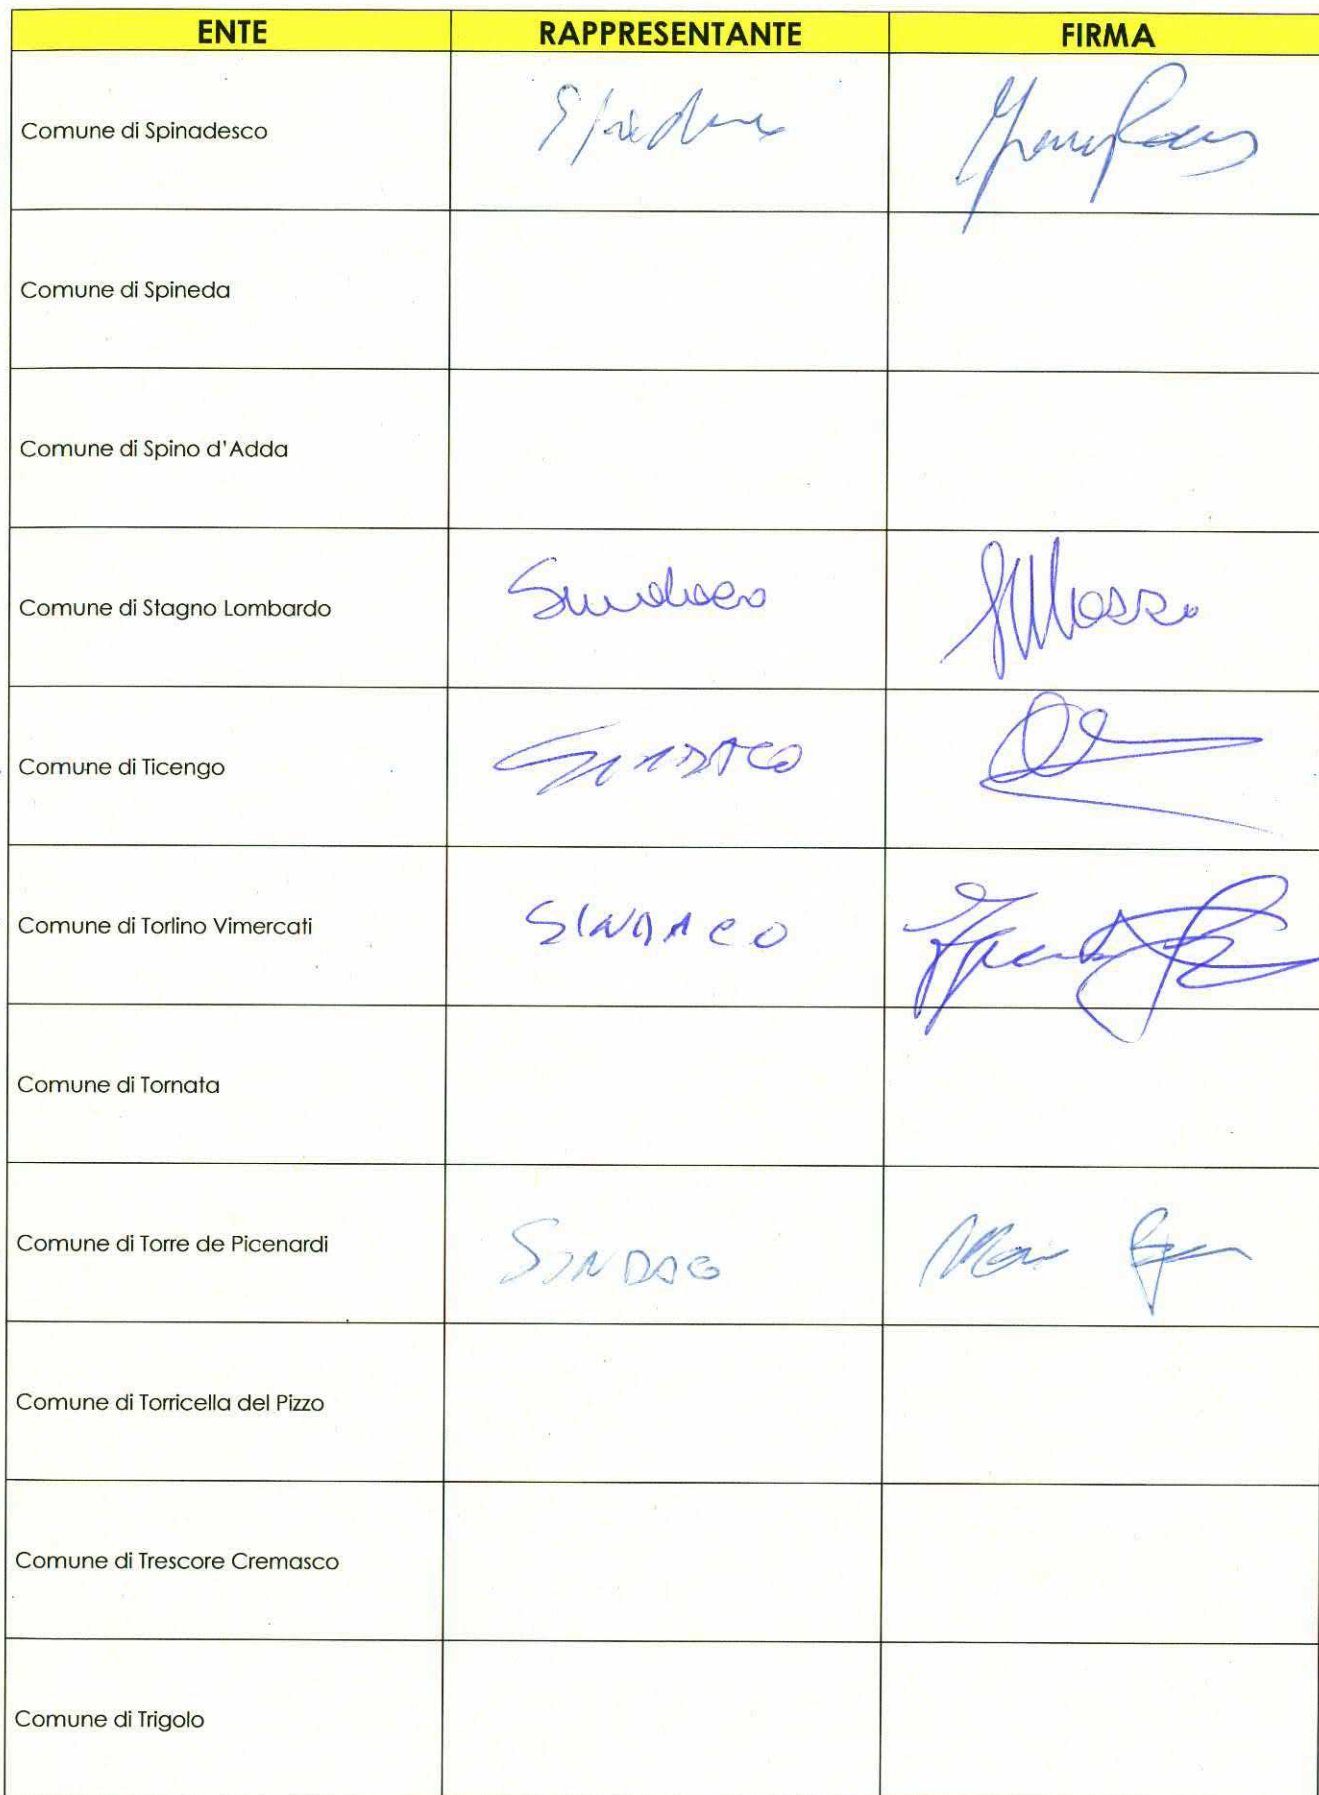 ENTE RAPPRESENTANTE FIRMA
Comune di Spinadesco
Comune di Spineda
Comune di Spino d'Adda
Comune di Stagno Lombardo Sindaco
Comune di Ticengo SINDACO
Comune di Torlino Vimercati SINDACO
Comune di Tornata
Comune di Torre de Picenardi SINDACO
Comune di Torricella del Pizzo
Comune di Trescore Cremasco
Comune di Trigolo